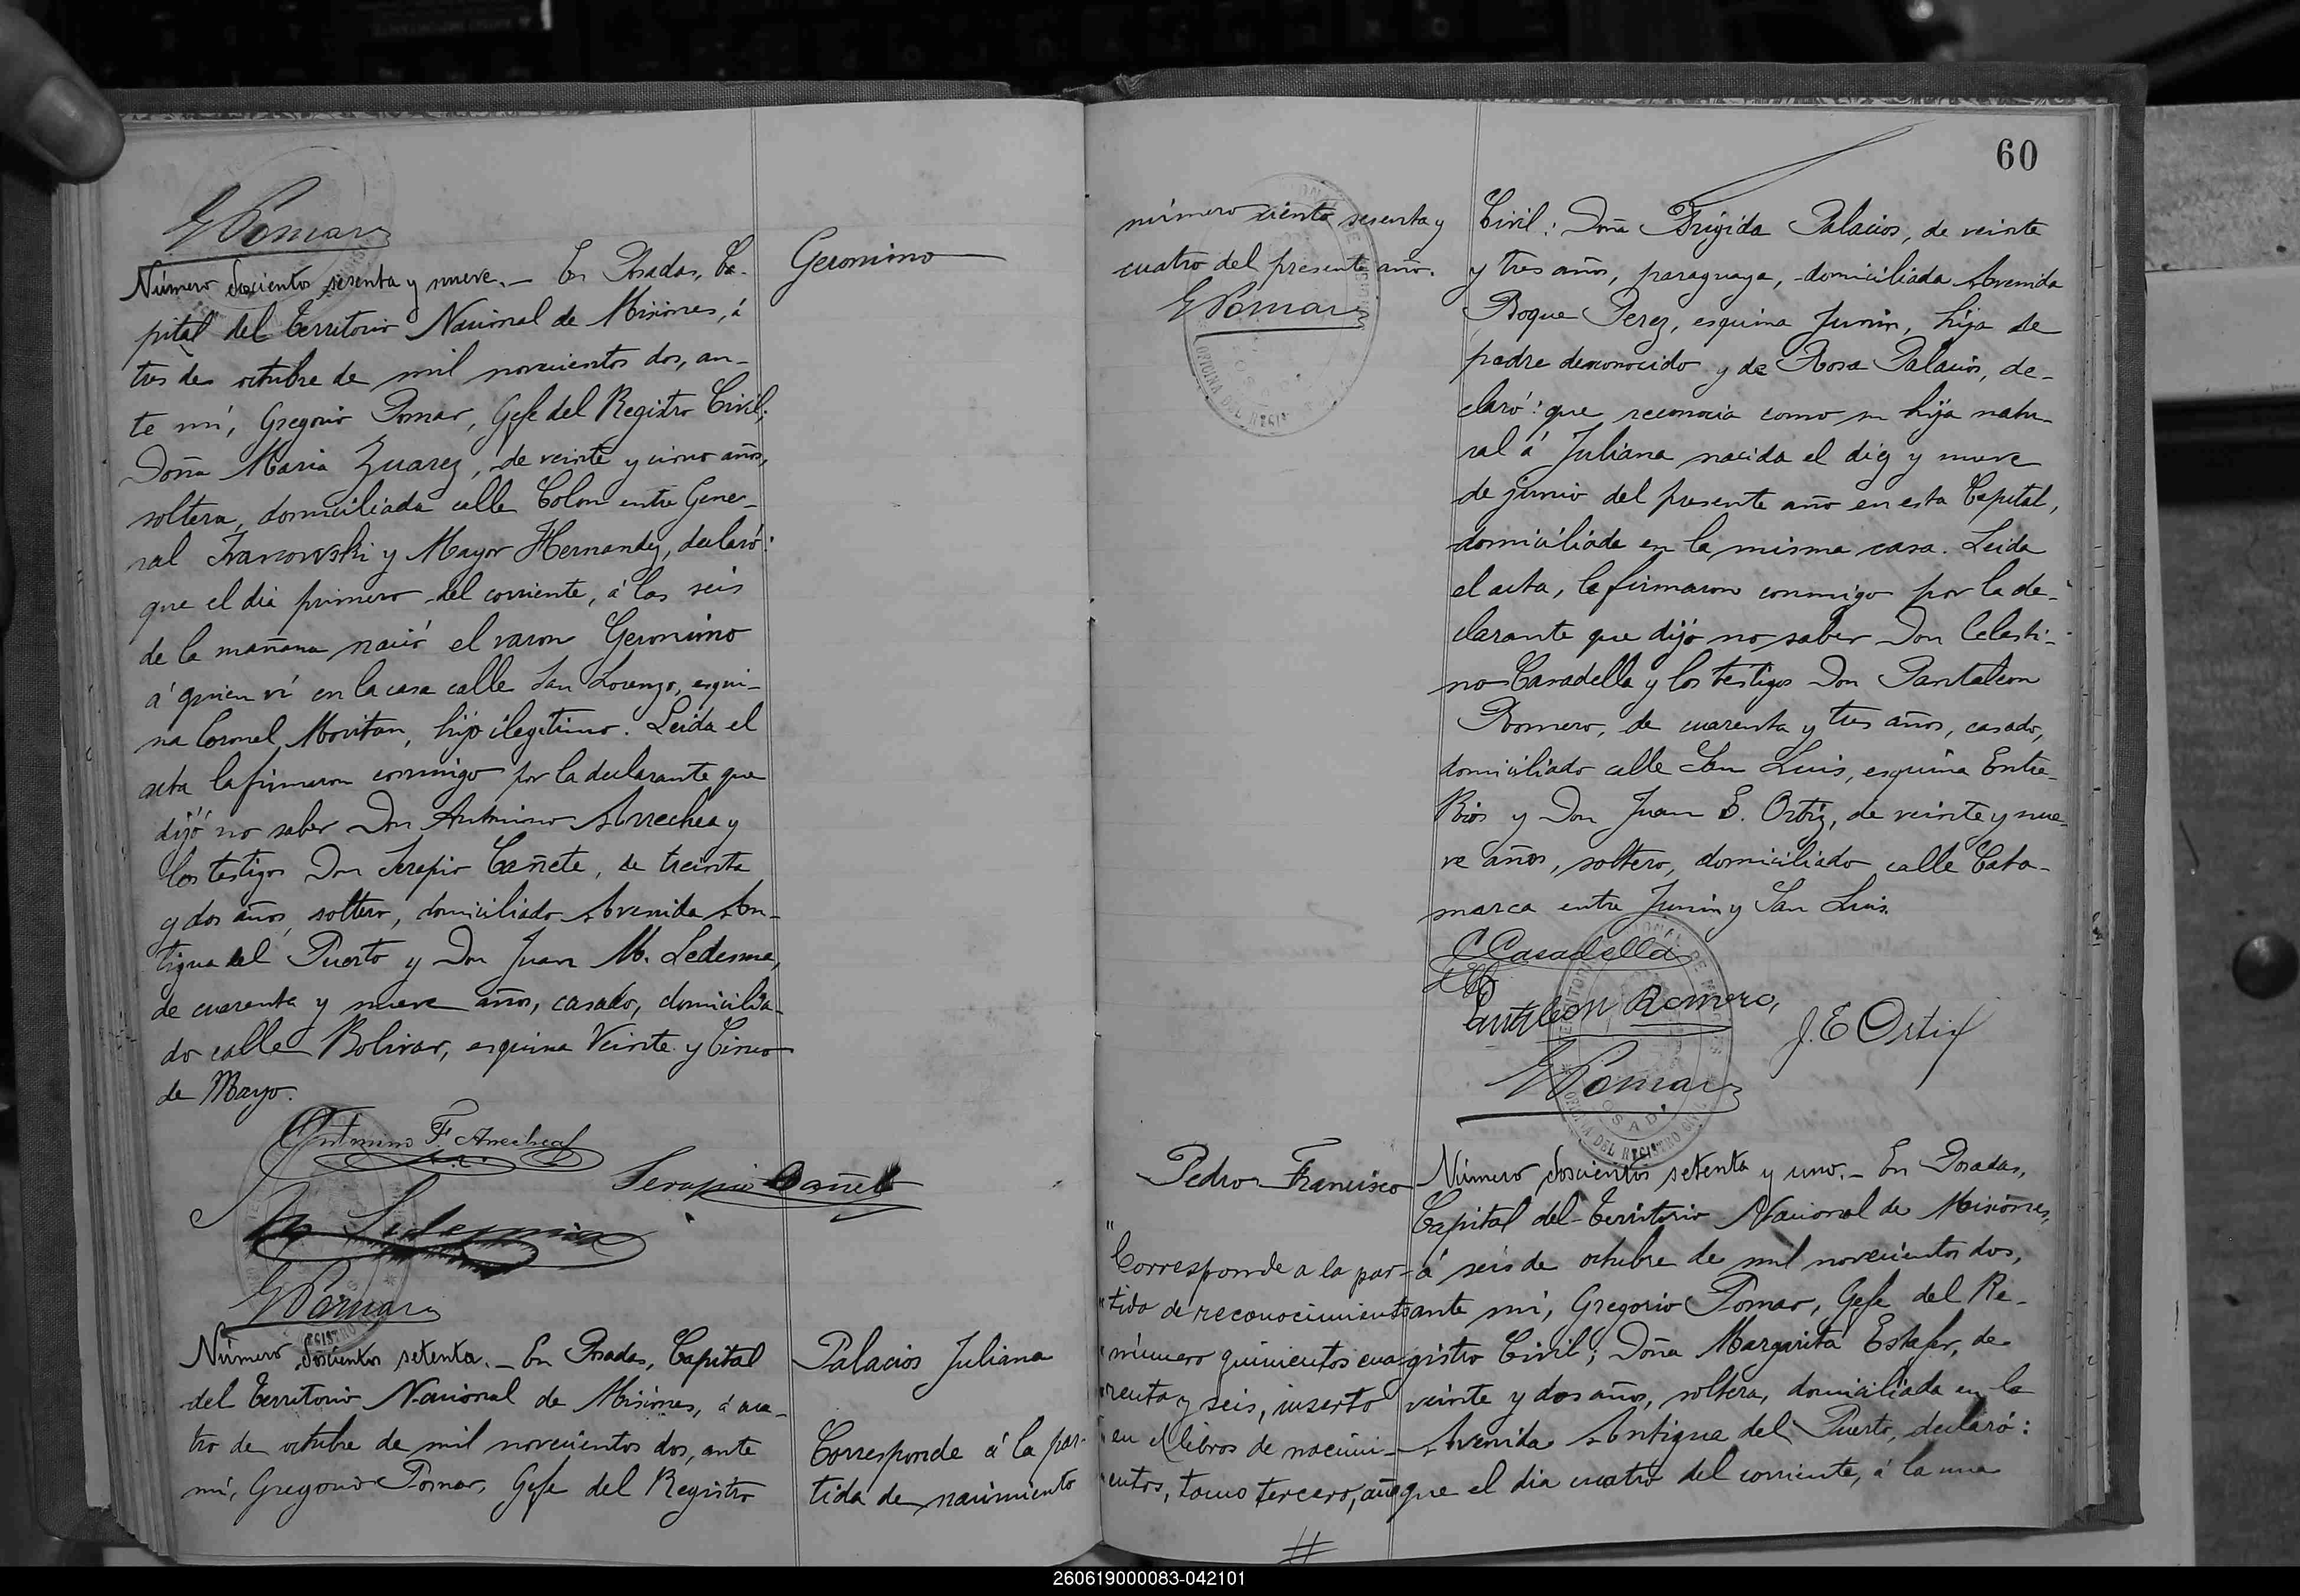 G Pomar
Número doscientos sesenta y nueve.- En Posadas, Ca-
pital del Territorio Nacional de Misiones, á
tres de octubre de mil novecientos dos, an-
te mí, Gregorio Pomar, Gefe del Registro Civil;
Doña Maria Zuarez, de veinte y cinco años,
soltera, domiciliada calle Colon entre Gene-
ral Ivanowski y Mayor Hernandez, declaró:
que el dia primero del corriente, á las seis
de la mañana nació el varon Geronimo
á quien ví en la casa calle San Lorenzo, esqui-
na Coronel Moritan, hijo ilegitimo. Leida el
acta la firmaron conmigo por la declarante que
dijó no saber Don Antonino Arrechea y
los testigos Don Serapio Cañete, de treinta
y dos años, soltero, domiciliado Avenida An-
tigua del Puerto y Don Juan M. Ledesma,
de cuarenta y nueve años, casado, domicilia-
do calle Bolivar, esquina Veinte y Cinco
de Mayo.
Antonino F. Arrechea
Serapio Cañete
Ledesma
G Pomar
Número doscientos setenta.- En Posadas, Capital
del Territorio Nacional de Misiones, á cua-
tro de octubre de mil novecientos dos, ante
mí, Gregorio Pomar, Gefe del Registro
Geronimo
Palacios Juliana
Corresponde á la par-
tida de nacimiento
60
número ciento sesenta y
cuatro del presente año.
G Pomar
Civil: Doña Brigida Palacios, de veinte
y tres años, paraguaya, domiciliada Avenida
Roque Perez, esquina Junin, hija de
padre desconocido y de Rosa Palacios, de-
claró: que reconocia como su hija natu-
ral á Juliana nacida el diez y nueve
de junio del presente año en esta Capital,
domiciliada en la misma casa. Leida
el acta, la firmaron conmigo por la de-
clarante que dijó no saber Don Celesti-
no Casadella y los testigos Don Pantaleon
Romero, de cuarenta y tres años, casado,
domiciliado calle San Luis, esquina Entre-
Rios y Don Juan E. Ortiz, de veinte y nue-
ve años, soltero, domiciliado calle Cata-
marca entre Junin y San Luis.
C Casadella
Pantaleon Romero,
J. E Ortiz
G Pomar
Pedro Francisco
"
Corresponde a la par-
"tida de reconocimiento
"número quinientos cua-
"renta y seis, inserto
"en el libros de nacimi-
"entos, tomo tercero, año
#
Número doscientos setenta y uno.- En Posadas,
Capital del Territorio Nacional de Misiones,
á seis de octubre de mil novecientos dos,
ante mí, Gregorio Pomar, Gefe del Re-
gistro Civil; Doña Margarita Estefer, de
veinte y dos años, soltera, domiciliada en la
Avenida Antigua del Puerto, declaró:
que el dia cuatro del corriente, á la una
260619000083-042101